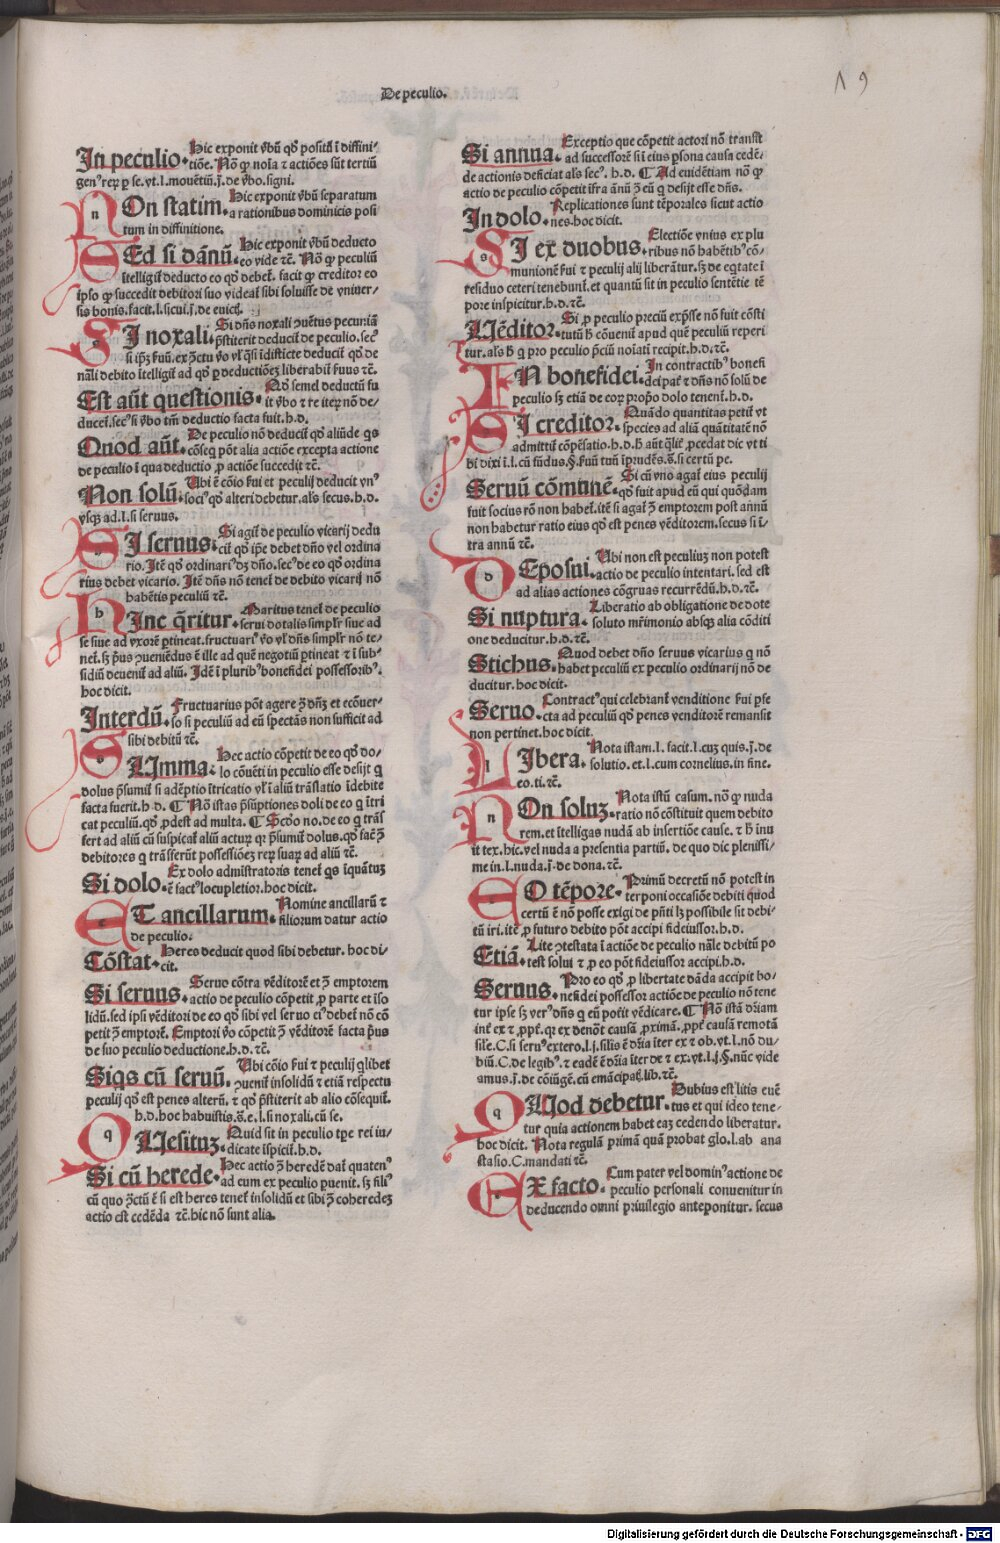 De peculio.
19
In peculio. Hic exponit v̄bū qđ positū ī diffini-
tiōe. Nō ꝙ noīa ⁊ actiōes sūt tertiū
gen⁹ reꝝ ꝑ se. vt. l. mouētiū. j. de v̄bo. signi.
NOn statim. Hic exponit v̄bū separatum
a rationibus dominicis posi
tum in diffinitione.
SEd si dānū. Hic exponit v̄bū deducto
eo vide ⁊c̄. Nō ꝙ peculiū
ītelligit̄ deducto eo qđ debet̄. facit ꝙ creditor eo
ipso ꝙ succedit debitori suo videat̄ sibi soluisse de vniuer-
sis bonis. facit. l. sicui. j. de euict̄.
SI noxali. Si dn̄s noxali ꝯuētus pecuniā
p̄stiterit deducit̄ de peculio. sec⁹
Est aūt questionis. Nō semel deductū fu
it v̄bo ⁊ re iteꝝ nō de-
ducet̄. sec⁹ si v̄bo tm̄ deductio facta fuit. h. d.
Quod aūt. De peculio nō deducit̄ qđ aliūde qs
cōseq̄ pōt alia actiōe excepta actione
de peculio ī qua deductio ꝓ actiōe succedit ⁊c̄.
Non solū. Ubi ē cōio ẜui et peculij deducit vn⁹
soci⁹ qđ alteri debetur. als secus. h. d.
vsqꝫ ad. l. si seruus.
SI seruus. Si agit̄ de peculio vicarij dedu
cit̄ qđ ip̄e debet dn̄o vel ordina
rio. Itē qđ ordinari⁹ dꝫ dn̄o. sec⁹ de eo qđ ordina
rius debet vicario. Itē dn̄s nō tenet̄ de debito vicarij nō
habētis peculiū ⁊c̄.
HInc q̄ritur. Maritus tenet̄ de peculio
serui dotalis simplr̄ siue ad
se siue ad vxorē ꝑtineat. fructuari⁹ v̄o vl̓ dn̄s simplr̄ nō te-
net̄. sꝫ p̄us ꝯueniēdus ē ille ad quē negotiū ꝑtineat ⁊ ī sub-
sidiū deuenit̄ ad aliū. Idē ī plurib⁹ bonefidei possessorib⁹.
hoc dicit.
Interdū. Fructuarius pōt agere ꝯ dn̄ꝫ et ecōuer-
so si peculiū ad eū spectās non sufficit ad
sibi debitū ⁊c̄.
SUmma. Hec actio cōpetit de eo qđ do-
lo cōuēti in peculio esse desijt q
dolus p̄sumit̄ si adēptio ītricatio vl̓ ī aliū trāslatio īdebite
facta fuerit. h. d. ¶ Nō istas p̄sūptiones doli de eo q̄ ītri
cat peculiū. qđ ꝓdest ad multa. ¶ Scđo no. de eo q̄ trās
fert ad aliū cū suspicat̄ aliū actuꝝ qꝛ p̄sumit̄ dolus. qđ fac̄ ꝯ
debitores q̄ trāsferūt possessiōeꝫ reꝝ suaꝝ ad aliū ⁊c̄.
Si dolo. Ex dolo admīstratoris tenet̄ qs īquātuꝫ
ē fact⁹ locupletior. hoc dicit.
ET ancillarum. Nomine ancillarū ⁊
filiorum datur actio
de peculio.
Cōstat. Heres deducit quod sibi debetur. hoc di-
cit.
Si seruus. Seruo cōtra vēditorē et ꝯ emptorem
actio de peculio cōpetit ꝓ parte et īso
lidū. sed ipsi vēditori de eo qđ sibi vel seruo ei⁹ debet̄ nō cō
petit ꝯ emptorē. Emptori v̄o cōpetit ꝯ vēditorē facta p̄us
de suo peculio deductione. h. d. ⁊c̄.
Siqs cū seruū. Ubi cōio ẜui ⁊ peculij qlibet
ꝯuenit̄ insolidū ⁊ etiā respectu
peculij qđ est penes alterū. ⁊ qđ p̄stiterit ab alio cōsequit̄.
h. d. hoc habuistis. s̄. e. l. si noxali. cū se.
QUesituꝫ. Quid sit in peculio tꝑe rei iu-
dicate īspicit̄. h. d.
Si cū herede. Hec actio ꝯ heredē dat̄ quaten⁹
ad eum ex peculio puenit. sꝫ fili⁹
cū quo ꝯctū ē si est heres tenet̄ insolidū et sibi ꝯ coheredeꝫ
actio est cedēda ⁊c̄. hic nō sunt alia.
Si annua. Exceptio que cōpetit actori nō transit
ad successorē si ī eius ꝑsona causa cedē-
de actionis deficiat als sec⁹. h. d. ¶ Ad euidētiam nō ꝙ
actio de peculio cōpetit īfra annū ꝯ eū q̄ desijt esse dn̄s.
In dolo. Replicationes sunt tēporales sicut actio
nes. hoc dicit.
SI ex duobus. Electiōe vnius ex plu
ribus nō habētib⁹ cō-
munionē ẜui ⁊ peculij alij liberātur. sꝫ de eqtate ī
residuo ceteri tenebunt̄. et quantū sit in peculio sentētie tē
pore inspicitur. h. d. ⁊c̄.
Uēditor. Si ꝓ peculio preciū exp̄sse nō fuit cōsti
tutū h̄ cōuenit̄ apud quē peculiū reperi
tur. als h̄ q̄ pro peculio p̄ciū noīati recipit. h. d. ⁊c̄.
IN bonefidei. In contractib⁹ bonefi
dei pat̄ ⁊ dn̄s nō solū de
peculio sꝫ etiā de eoꝝ prop̄o dolo tenent̄. h. d.
SI creditor. Quādo quantitas petit̄ vt
species ad aliā quātitatē nō
admittit̄ cōpēsatio. h. d.
Seruū cōmunē. Si cū vno agat̄ eius peculij
qđ fuit apud eū qui quōdam
fuit socius rō non habet̄. itē si agat̄ ꝯ emptorem post annū
non habetur ratio eius qđ est penes vēditorem. secus si ī-
tra annū ⁊c̄.
DEposui. Ubi non est peculiuꝫ non potest
actio de peculio intentari. sed est
ad alias actiones cōgruas recurrēdū. h. d. ⁊c̄.
Si nuptura. Liberatio ab obligatione de dote
soluto mr̄imonio absqꝫ alia cōditi
one deducitur. h. d. ⁊c̄.
Stichus. Quod debet dn̄o seruus vicarius q̄ nō
habet peculiū ex peculio ordinarij nō de
ducitur. hoc dicit.
Seruo. Contract⁹ qui celebrant̄ venditione ẜui ꝑfe
cta ad peculiū qđ penes venditorē remansit
non pertinet. hoc dicit.
LIbera. Nota istam. l. facit. l. cuꝫ quis. j. de
solutio. et. l. cum cornelius. in fine.
eo. ti. ⁊c̄.
NOn soluꝫ. Nota istū casum. nō ꝙ nuda
ratio nō cōstituit quem debito
rem. et ītelligas nudā ab insertiōe cause. ⁊ h̄ īnu
it tex. hic. vel nuda a presentia partiū. de quo dic plenissi-
me in. l. nuda. j. de dona. ⁊c̄.
EO tēpore. Primū decretū nō potest in
terponi occasiōe debiti quod
certū ē nō posse exigi de p̄nti lꝫ possibile sit debi-
tū iri. itē ꝓ futuro debito pōt accipi fideiussor. h. d.
Etiā. Lite ꝯtestata ī actiōe de peculio nāle debitū po
test solui ⁊ ꝓ eo pōt fideiussor accipi. h. d.
Seruus. Pro eo qđ ꝓ libertate dāda accipit bo-
nefidei possessor actiōe de peculio nō tene
tur ipse sꝫ ver⁹ dn̄s q̄ eū potīt vēdicare. ¶ Nō istā dr̄iam
int̄ ex ⁊ ꝓpt̄. qꝛ ex denōt causā ꝓximā. ꝓpt̄ causā remotā
amus. j. de cōiūgē. cū emācipat̄. lib. ⁊c̄.
QUod debetur. Dubius est litis euē
tus et qui ideo tene-
tur quia actionem habet eaꝫ cedendo liberatur.
hoc dicit. Nota regulā primā quā probat glo. l. ab ana
stasio. C. mandati ⁊c̄.
EX facto. Cum pater vel domin⁹ actione de
peculio personali conuenitur in
deducendo omni priuilegio anteponitur. secus
Digitalisierung gefördert durch die Deutsche Forschungsgemeinschaft - DFG